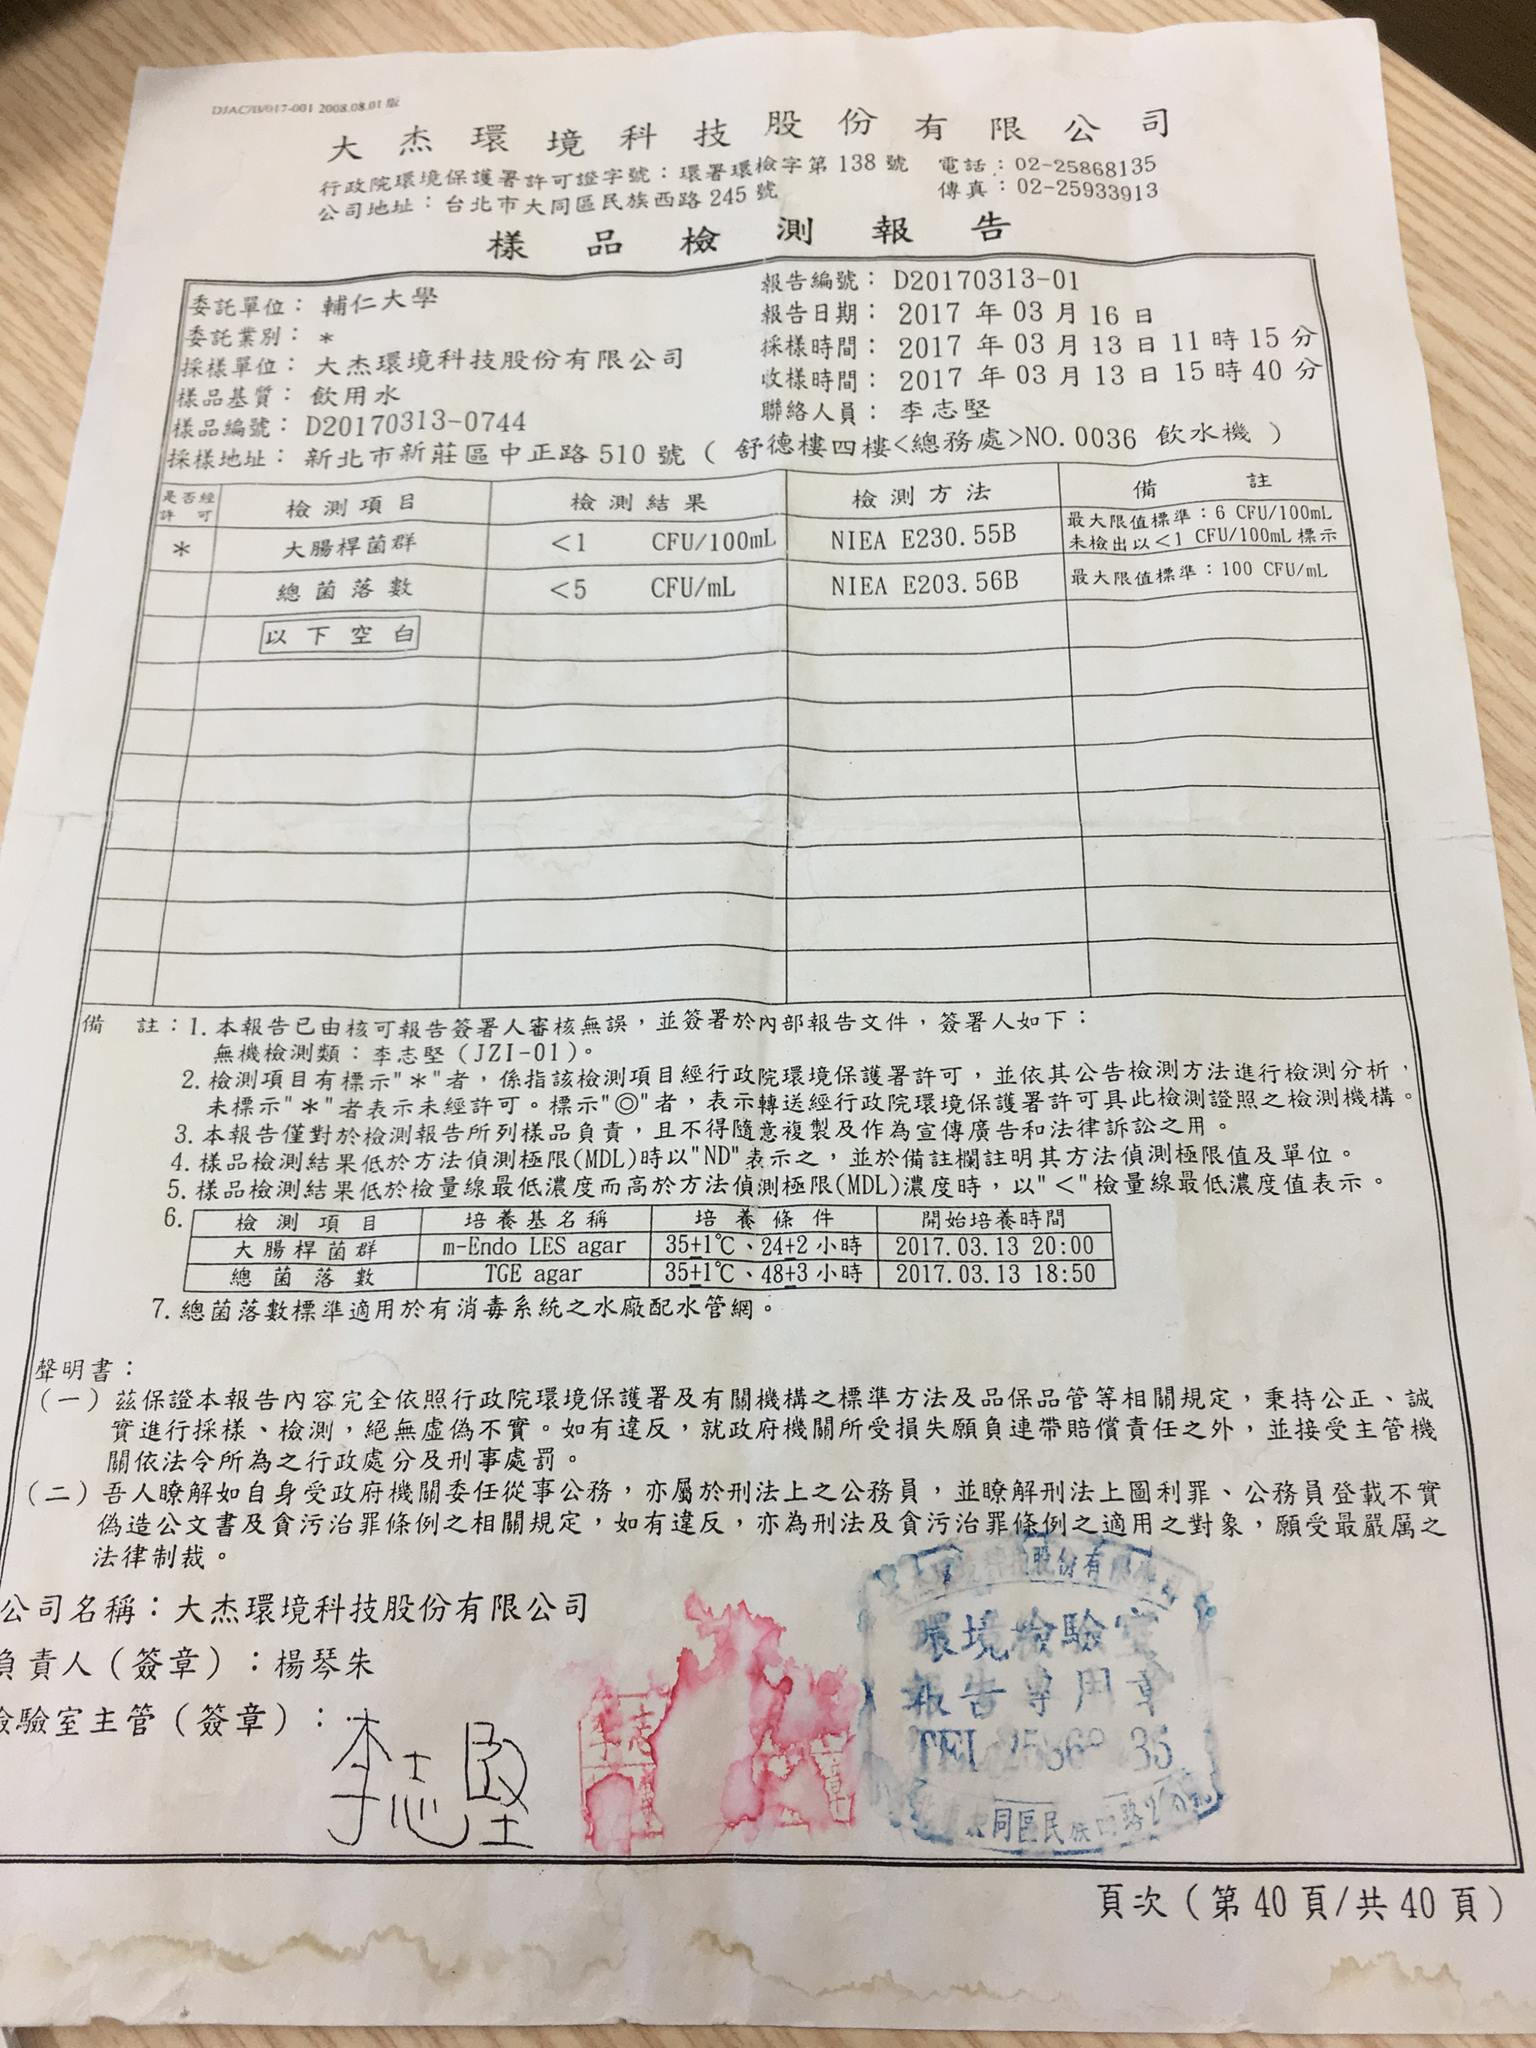 DJAC/B/017-001 2008.08.01版
大杰環境科技股份有限公司
行政院環境保護署許可證字號：環署環檢字第138號 電話：02-25868135
公司地址：台北市大同區民族西路245號 傳真：02-25933913
樣品檢測報告
委託單位：輔仁大學 報告編號：D20170313-01
委託業別：* 報告日期：2017年03月16日
採樣單位：大杰環境科技股份有限公司 採樣時間：2017年03月13日11時15分
樣品基質：飲用水 收樣時間：2017年03月13日15時40分
樣品編號：D20170313-0744 聯絡人員：李志堅
採樣地址：新北市新莊區中正路510號（舒德樓四樓<總務處>NO.0036 飲水機）
是否經許可 檢測項目 檢測結果 檢測方法 備註
* 大腸桿菌群 <1 CFU/100mL NIEA E230.55B 最大限值標準：6 CFU/100mL
未檢出以<1 CFU/100mL標示
總菌落數 <5 CFU/mL NIEA E203.56B 最大限值標準：100 CFU/mL
以下空白
備註：1.本報告已由核可報告簽署人審核無誤，並簽署於內部報告文件，簽署人如下：
無機檢測類：李志堅(JZI-01)。
2.檢測項目有標示"＊"者，係指該檢測項目經行政院環境保護署許可，並依其公告檢測方法進行檢測分析，
未標示"＊"者表示未經許可。標示"◎"者，表示轉送經行政院環境保護署許可具此檢測證照之檢測機構。
3.本報告僅對於檢測報告所列樣品負責，且不得隨意複製及作為宣傳廣告和法律訴訟之用。
4.樣品檢測結果低於方法偵測極限(MDL)時以"ND"表示之，並於備註欄註明其方法偵測極限值及單位。
5.樣品檢測結果低於檢量線最低濃度而高於方法偵測極限(MDL)濃度時，以"＜"檢量線最低濃度值表示。
6. 檢測項目 培養基名稱 培養條件 開始培養時間
大腸桿菌群 m-Endo LES agar 35±1℃、24±2小時 2017.03.13 20:00
總菌落數 TGE agar 35±1℃、48±3小時 2017.03.13 18:50
7.總菌落數標準適用於有消毒系統之水廠配水管網。
聲明書：
（一）茲保證本報告內容完全依照行政院環境保護署及有關機構之標準方法及品保品管等相關規定，秉持公正、誠
實進行採樣、檢測，絕無虛偽不實。如有違反，就政府機關所受損失願負連帶賠償責任之外，並接受主管機
關依法令所為之行政處分及刑事處罰。
（二）吾人瞭解如自身受政府機關委任從事公務，亦屬於刑法上之公務員，並瞭解刑法上圖利罪、公務員登載不實
偽造公文書及貪污治罪條例之相關規定，如有違反，亦為刑法及貪污治罪條例之適用之對象，願受最嚴厲之
法律制裁。
公司名稱：大杰環境科技股份有限公司
負責人（簽章）：楊琴朱
檢驗室主管（簽章）：
李志堅
李志
股份有限
環境檢驗室
報告專用章
TEL
同區民族西路
頁次（第40頁/共40頁）